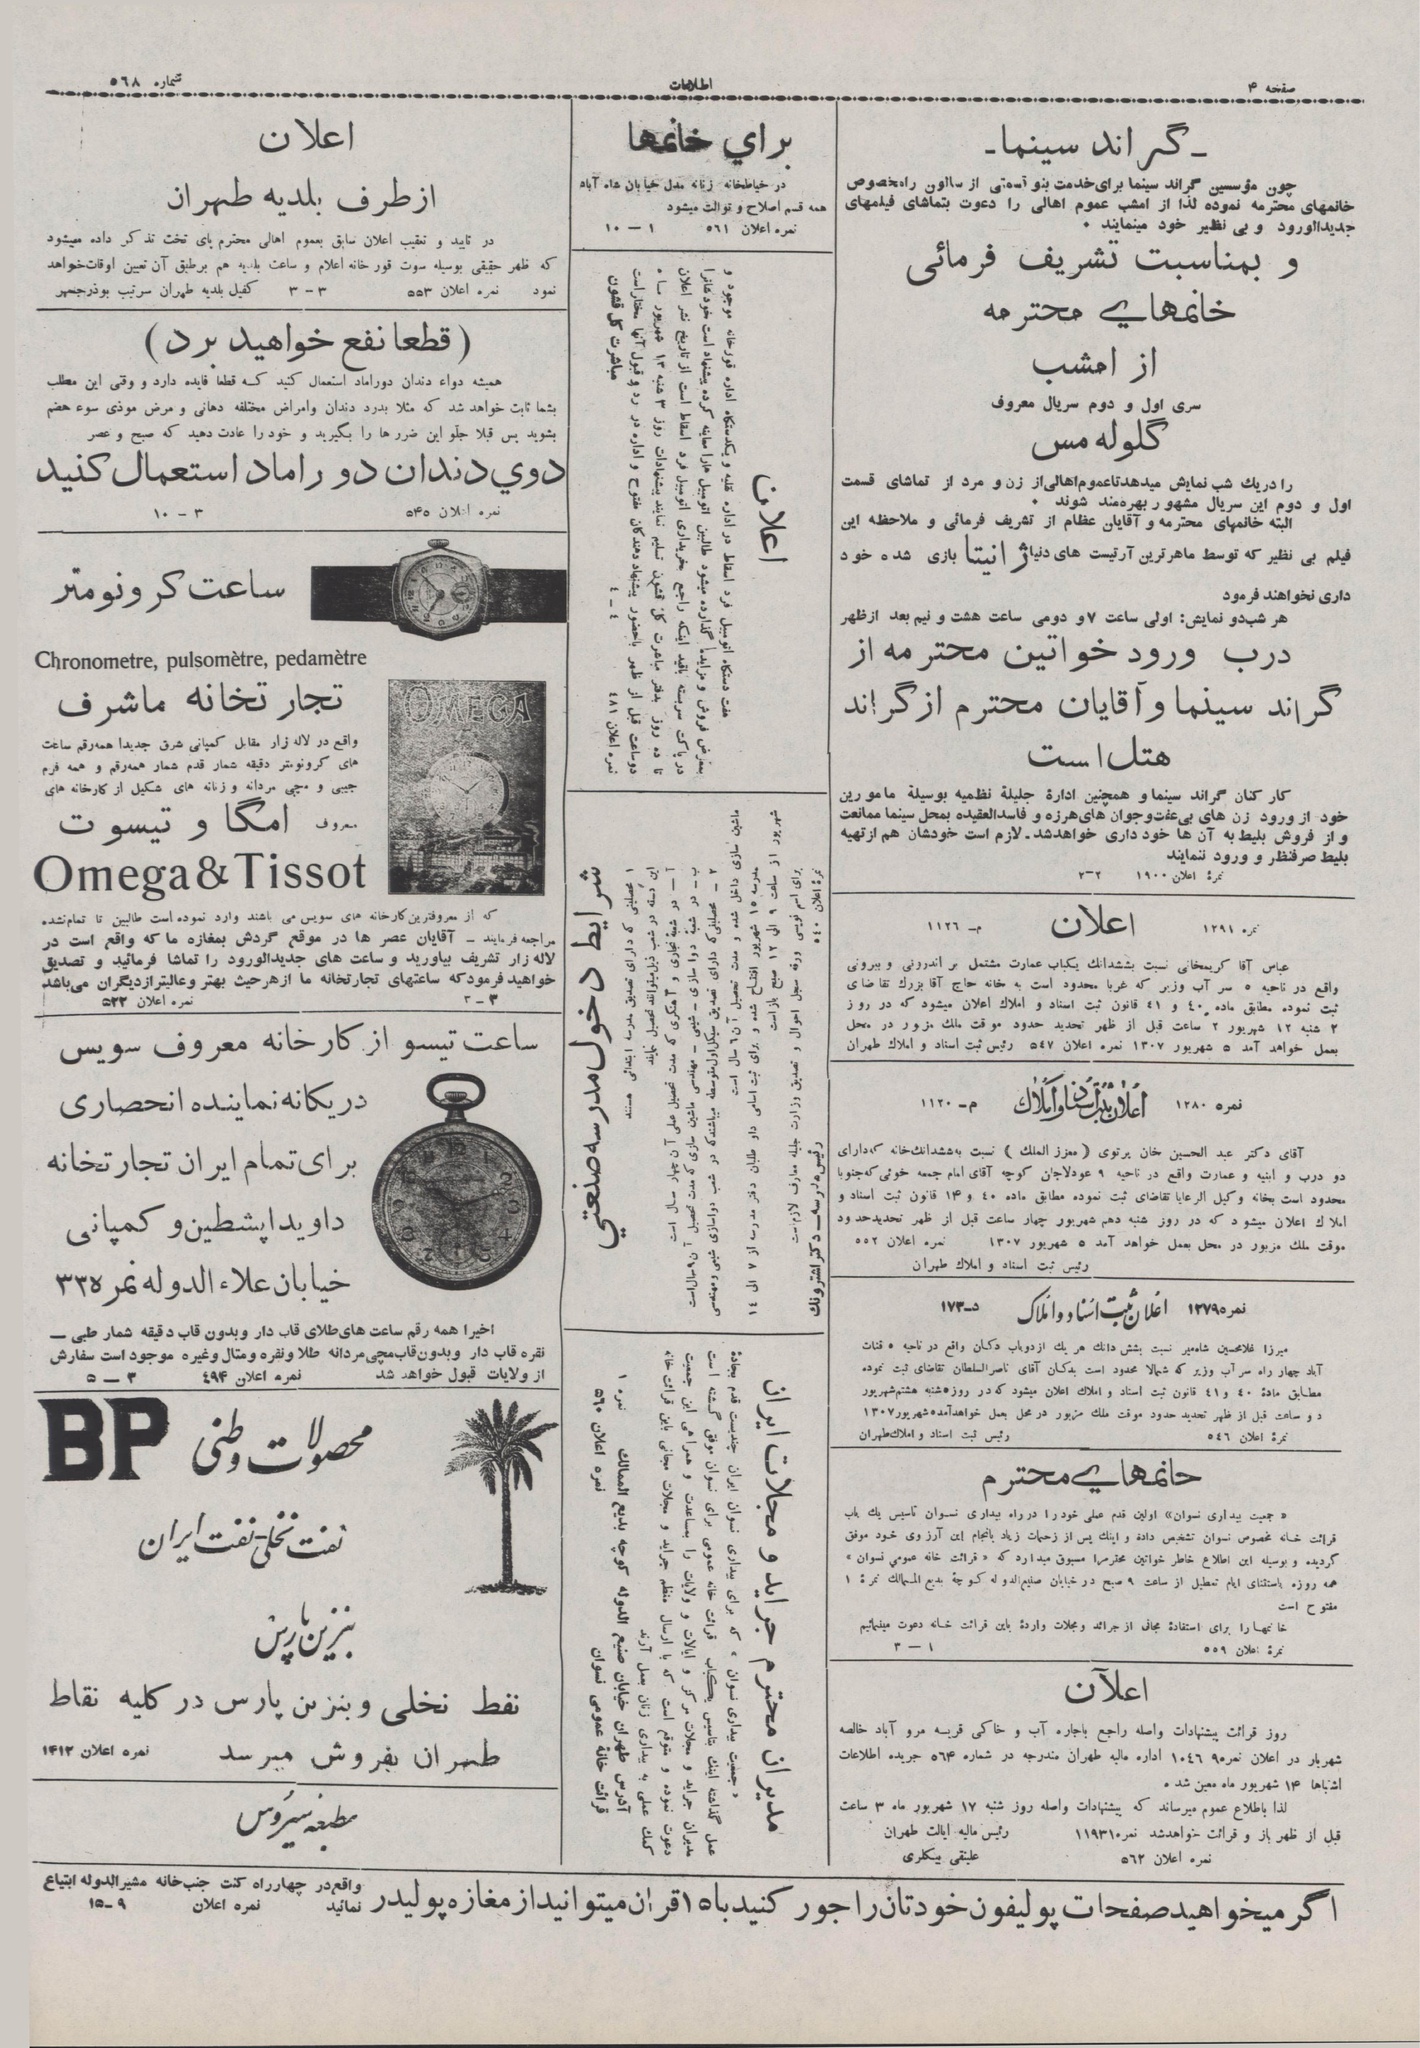 صفحه ۴
اطلاعات
شماره ۵۶۸
ـ گراند سینما ـ
چون مؤسسین گراند سینما برای خدمت بنوع قسمتی از سالون را مخصوص
خانمهای محترمه نموده لذا از امشب عموم اهالی را دعوت بتماشای فیلمهای
جدیدالورود و بی نظیر خود مینمایند ۰
و بمناسبت تشریف فرمائی
خانمهای محترمه
از امشب
سری اول و دوم سریال معروف
گلوله مس
را دریك شب نمایش میدهد تا عموم اهالی از زن و مرد از تماشای قسمت
اول و دوم این سریال مشهور بهره‌مند شوند ۰
البته خانمهای محترمه و آقایان عظام از تشریف فرمائی و ملاحظه این
فیلم بی نظیر که توسط ماهرترین آرتیست های دنیا ژانیتا بازی شده خود
داری نخواهند فرمود
هر شب دو نمایش: اولی ساعت ۷ و دومی ساعت هشت و نیم بعد از ظهر
درب ورود خواتین محترمه از
گراند سینما و آقایان محترم از گراند
هتل است
کارکنان گراند سینما و همچنین ادارهٔ جلیلهٔ نظمیه بوسیلهٔ مامورین
خود از ورود زن های بی‌عفت و جوان های هرزه و فاسد العقیده بمحل سینما ممانعت
و از فروش بلیط به آن ها خود داری خواهد شد ـ لازم است خودشان هم از تهیه
بلیط صرفنظر و ورود ننمایند
نمرهٔ اعلان ۱۹۰۰ ۲-۲
نمره ۱۲۹۱ اعلان م- ۱۱۲۶
عباس آقا کریمخانی نسبت بششدانك یکباب عمارت مشتمل بر اندرونی و بیرونی
واقع در ناحیه ۵ سر آب وزیر که غربا محدود است به خانه حاج آقا بزرك تقاضای
ثبت نموده مطابق ماده ۴۰ و ۴۱ قانون ثبت اسناد و املاك اعلان میشود که در روز
۲ شنبه ۱۲ شهریور ۲ ساعت قبل از ظهر تحدید حدود موقت ملك مزبور در محل
بعمل خواهد آمد ۵ شهریور ۱۳۰۷ نمره اعلان ۵۴۷ رئیس ثبت اسناد و املاك طهران
نمره ۱۲۸۰ اعلان ثبت اسناد و املاك م- ۱۱۲۰
آقای دکتر عبد الحسین خان پرتوی (معزز الملك) نسبت به ششدانك خانه که دارای
دو درب و ابنیه و عمارت واقع در ناحیه ۹ عودلاجان کوچه آقای امام جمعه خوئی که جنوبا
محدود است بخانه وکیل الرعایا تقاضای ثبت نموده مطابق ماده ۴۰ و ۱۴ قانون ثبت اسناد و
املاك اعلان میشود که در روز شنبه دهم شهریور چهار ساعت قبل از ظهر تحدید حدود
موقت ملك مزبور در محل بعمل خواهد آمد ۵ شهریور ۱۳۰۷ نمره اعلان ۵۵۲
رئیس ثبت اسناد و املاك طهران
نمره ۱۲۷۹ اعلان ثبت اسناد و املاك د-۱۷۳
میرزا غلامحسین شاه‌میر نسبت بشش دانك هر یك از دو باب دکان واقع در ناحیه ۵ قنات
آباد چهار راه سر آب وزیر که شمالا محدود است بدکان آقای ناصر السلطان تقاضای ثبت نموده
مطابق مادهٔ ۴۰ و ۴۱ قانون ثبت اسناد و املاك اعلان میشود که در روز ۵ شنبه هشتم شهریور
دو ساعت قبل از ظهر تحدید حدود موقت ملك مزبور در محل بعمل خواهد آمد ۵ شهریور ۱۳۰۷
نمرهٔ اعلان ۵۴۶ رئیس ثبت اسناد و املاك طهران
خانمهای محترم
«جمعیت بیداری نسوان» اولین قدم عملی خود را در راه بیداری نسوان تاسیس یك باب
قرائت خانه مخصوص نسوان تشخیص داده و اینك پس از زحمات زیاد بانجام این آرزوی خود موفق
گردیده و بوسیله این اطلاع خاطر خواتین محترمرا مسبوق میدارد که «قرائت خانه عمومی نسوان»
همه روزه باستثنای ایام تعطیل از ساعت ۹ صبح در خیابان صنیع الدوله کوچهٔ بدیع الممالك نمرهٔ ۱
مفتوح است
خانمها را برای استفادهٔ مجانی از جرائد و مجلات واردهٔ باین قرائت خانه دعوت مینمائیم
نمرهٔ اعلان ۵۵۹ ۱ – ۳
اعلان
روز قرائت پیشنهادات واصله راجع باجاره آب و خاکی قریه مرو آباد خالصه
شهریار در اعلان نمره ۱۰۴۶۹ اداره مالیه طهران مندرجه در شماره ۵۶۴ جریده اطلاعات
اشتباها ۱۴ شهریور ماه معین شده
لذا باطلاع عموم میرساند که پیشنهادات واصله روز شنبه ۱۷ شهریور ماه ۳ ساعت
قبل از ظهر باز و قرائت خواهد شد نمره ۱۱۹۳۱ رئیس مالیه ایالت طهران
نمره اعلان ۵۶۲ علینقی بیگلری
برای خانمها
در خیاطخانه زنانه مدل خیابان شاه آباد
همه قسم اصلاح و توالت میشود
نمره اعلان ۵۶۱ ۱ – ۱۰
اعلان
هفت دستگاه اتومبیل فرد اسقاط در اداره نقلیه و یکدستگاه اداره قورخانه موجود و
بمعرض فروش و مزایده گذارده میشود طالبین اتومبیل هارا معاینه کرده پیشنهاد است خودشانرا
در پاکت سربسته باقید اینکه راجع بخریداری اتومبیل فرد اسقاط است از تاریخ نشر اعلان
تا ده روز بدفتر مباشرت کل قشون تسلیم نمایند پیشنهادات روز ۳ شنبه ۱۳ شهریور ماه
دو ساعت قبل از ظهر باحضور پیشنهاد دهندگان مفتوح و اداره در رد و قبول آنها مختار است
نمره اعلان ۴۸۱ ۴ – ۴ مباشرت کل قشون
شرایط دخول مدرسه صنعتی
۱ محصلینی که دارای تصدیق مدرسه ابتدائی هستند
آ – در شعبهٔ نجاری و آهنگری که مدت تحصیل عملی آن چهار سال است
ب – در شعبهٔ دوا سازی – شیمی – مهندسی ماشین سازی که مدت تحصیل آن ۹ سال است
۲ – محصلینی که دارای تصدیق سیکل اول متوسطه میباشند که در شعب دواسازی شیمی و مهندسی
ماشین سازی داخل شده و مدت تحصیل آن ۶ سال است
مدرسه ۱۵ شهریور افتتاح شده و برای ثبت اسامی داو طلبان دفتر مدرسه از ۷ الی ۱۴
شهریور از ساعت ۹ الی ۱۲ صبح باز است
برای اسم نویسی ورقه سجل احوال و تصدیق وزارت جلیله معارف لازم است
نمرهٔ اعلان ۵۴۰ رئیس مدرسه – دکتر اشترونك
مدیران محترم جراید و مجلات ایران
«جمعیت بیداری نسوان» که برای بیداری نسوان ایران چندیست قدم بجادهٔ
عمل گذاشته اینك بتاسیس یکباب قرائت خانه عمومی برای نسوان موفق گشته است
مدیران جراید و مجلات مرکز و ایالات و ولایات را بمساعدت و همراهی این جمعیت
دعوت نموده و متوقع است که با ارسال منظم جراید و مجلات مجانی باین قرائت خانه
کمك عملی به بیداری زنان بعمل آرند
آدرس طهران خیابان صنیع الدوله کوچه بدیع الممالك نمره ۱
قرائت خانهٔ عمومی نسوان نمره اعلان ۵۶۰
اعلان
از طرف بلدیه طهران
در تایید و تعقیب اعلان سابق بعموم اهالی محترم پای تخت تذکر داده میشود
که ظهر حقیقی بوسیله سوت قورخانه اعلام و ساعت بلدیه هم برطبق آن تعیین اوقات خواهد
نمود نمره اعلان ۵۵۳ ۳ – ۳ کفیل بلدیه طهران سرتیب بوذرجمهر
(قطعا نفع خواهید برد)
همیشه دواء دندان دوراماد استعمال کنید که قطعا فایده دارد و وقتی این مطلب
بشما ثابت خواهد شد که مثلا بدرد دندان وامراض مختلفه دهانی و مرض موذی سوء هضم
بشوید پس قبلا جلو این ضرر ها را بگیرید و خود را عادت دهید که صبح و عصر
دوی دندان دو راماد استعمال کنید
نمره اعلان ۵۴۵ ۳ – ۱۰
ساعت کرونومتر
Chronometre, pulsomètre, pedamètre
OMEGA
تجارتخانه ماشرف
واقع در لاله زار مقابل کمپانی شرق جدیدا همه رقم ساعت
های کرونومتر دقیقه شمار قدم شمار همه رقم و همه فرم
جیبی و مچی مردانه و زنانه های شکیل از کارخانه های
معروف امگا و تیسوت
Omega&Tissot
که از معروفترین کارخانه های سویس می باشند وارد نموده است طالبین تا تمام نشده
مراجعه فرمایند – آقایان عصر ها در موقع گردش بمغازه ما که واقع است در
لاله زار تشریف بیاورید و ساعت های جدیدالورود را تماشا فرمائید و تصدیق
خواهید فرمود که ساعتهای تجارتخانه ما از هر حیث بهتر و عالیتر از دیگران می‌باشد
۳-۳ نمره اعلان ۵۲۲
ساعت تیسو از کارخانه معروف سویس
دریگانه نماینده انحصاری
برای تمام ایران تجارتخانه
داوید اپشطین و کمپانی
خیابان علاء الدوله نمره ۳۳
اخیرا همه رقم ساعت های طلای قاب دار و بدون قاب دقیقه شمار طبی –
نقره قاب دار و بدون قاب مچی مردانه طلا و نقره و متال و غیره موجود است سفارش
از ولایات قبول خواهد شد نمره اعلان ۴۹۴ ۳ – ۵
BP
محصولات وطنی
نفت نخلی - نفت ایران
بنزین پارس
نفط نخلی و بنزین پارس در کلیه نقاط
طهران بفروش میرسد نمره اعلان ۱۴۱۲
مطبعه سیروس
اگر میخواهید صفحات پولیفون خودتان را جور کنید با ۱۵ قران میتوانید از مغازه پولیدر
واقع در چهار راه کنت جنب خانه مشیرالدوله ابتیاع
نمائید نمره اعلان ۹–۱۵